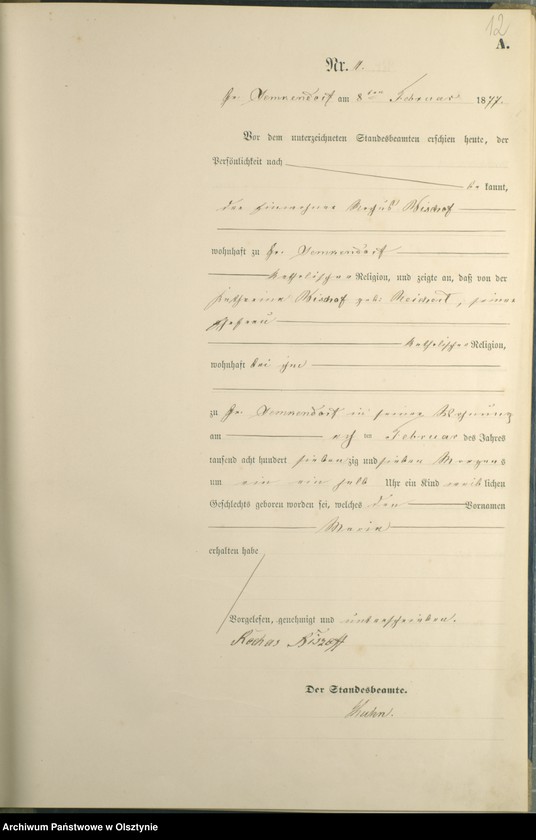 12
A.
Nr. 11.
Gr. Lemkendorf am 8ten Februar 1877.
Vor dem unterzeichneten Standesbeamten erschien heute, der
Persönlichkeit nach
be kannt,
der Einwohner Rochus Bischof
wohnhaft zu Gr. Lemkendorf
katholischer Religion, und zeigte an, daß von der
Katharina Bischof geb. , seiner
Ehefrau
katholischer Religion,
wohnhaft bei ihm
zu Gr. Lemkendorf in seiner Wohnung
am Februar des Jahres
tausend acht hundert siebenzig und sieben Morgens
um ein halb Uhr ein Kind weiblichen
Geschlechts geboren worden sei, welches den Vornamen
Maria
erhalten habe
Vorgelesen, genehmigt und unterschrieben.
Rochus
Der Standesbeamte.
Archiwum Państwowe w Olsztynie